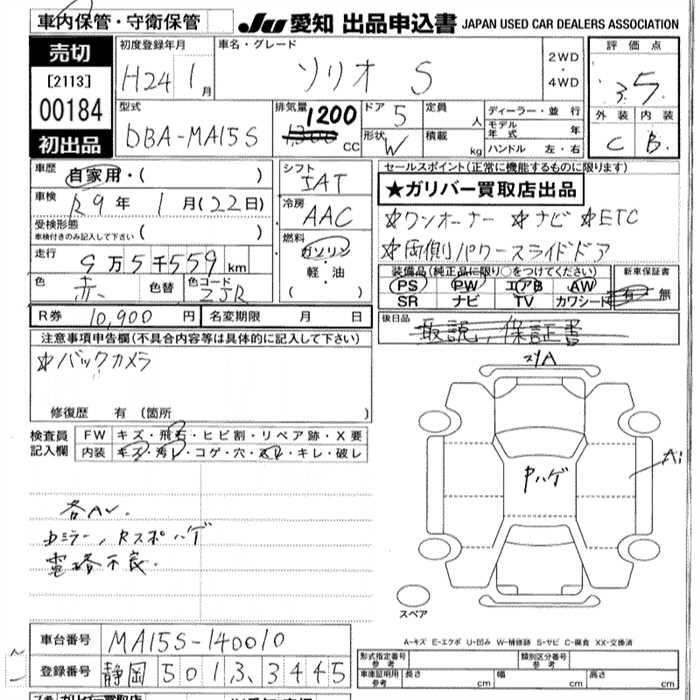 車内保管・守衛保管
Ju 愛知 出品申込書 JAPAN USED CAR DEALERS ASSOCIATION
売切
[2113]
00184
初出品
初度登録年月
H24 1月
車名・グレード
ソリオ S
2WD
・
4WD
評価点
3.5
外装 内装
C B
型式
DBA-MA15S
排気量
1200
1,300 CC
ドア 5
形状 W
定員 人
積載 kg
ディーラー・並行
モデル年式 年
ハンドル 左・右
車歴
自家用・( )
車検
R9年 1月(22日)
受検形態
車検付きのみ記入して下さい ( )
走行
9万5千559km
色 赤 色替 色コード ZJR
シフト
IAT
冷房
AAC
燃料
ガソリン
軽・油
( )
セールスポイント(正常に機能するものに限ります)
★ガリバー買取店出品
☆ワンオーナー ☆ナビ ☆ETC
☆両側パワースライドドア
装備品(純正品に限り○をつけてください)
PS PW エアB AW
SR ナビ TV カワシート
新車保証書
有・無
R券 10,900円 名変期限 月 日
後日品
取説、保証書
注意事項申告欄(不具合内容等は具体的に記入して下さい)
☆バックカメラ
修復歴 有 (箇所 )
検査員
記入欄
FW キズ・飛石・ヒビ割・リペア跡・X要
内装 キズ・汚レ・コゲ・穴・スレ・キレ・破レ
各AU.
ミラー, Rスポハゲ
電格不良.
A
ハゲ
A1
スペア
A-キズ E-エクボ U-凹み W-補修跡 S-サビ C-腐食 XX-交換済
車台番号 MA15S-140010
登録番号 静岡 501 3 3445
形式指定番号
参考
類別区分番号
参考
車庫証明用
参考
長さ cm 幅 cm 高さ cm